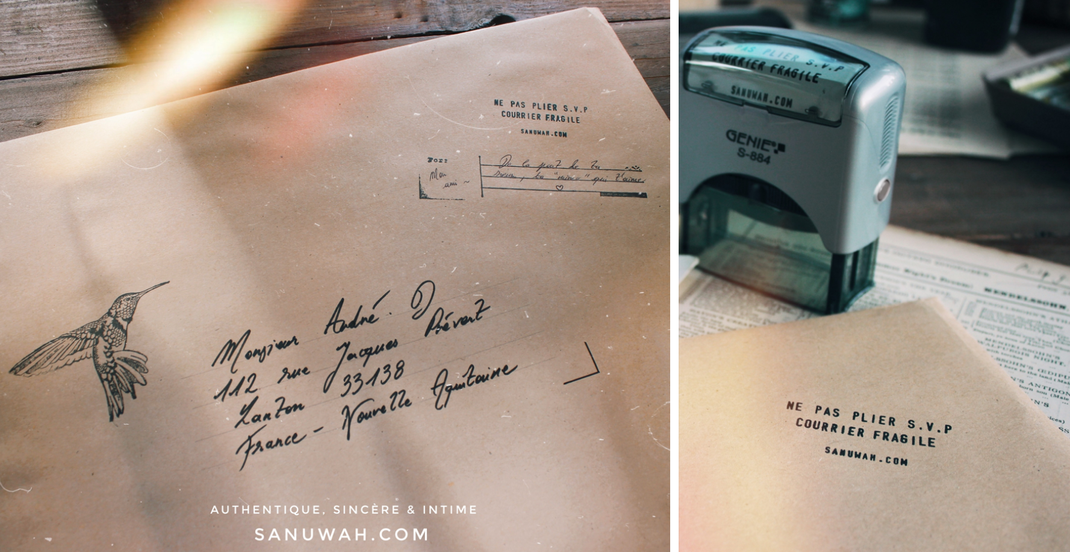 NE PAS PLIER S.V.P
COURRIER FRAGILE
SANUWAH.COM
POST
De la part de ta
sœur, la "mimi" qui t'aime
Monsieur André. D
112 rue Jacques Prévert
Lanton 33138
France - Nouvelle Aquitaine
AUTHENTIQUE, SINCÈRE & INTIME
SANUWAH.COM
NE PAS PLIER S.V.P
COURRIER FRAGILE
SANUWAH.COM
GENIE
S-884
MENDELSSOHN
NE PAS PLIER S.V.P
COURRIER FRAGILE
SANUWAH.COM